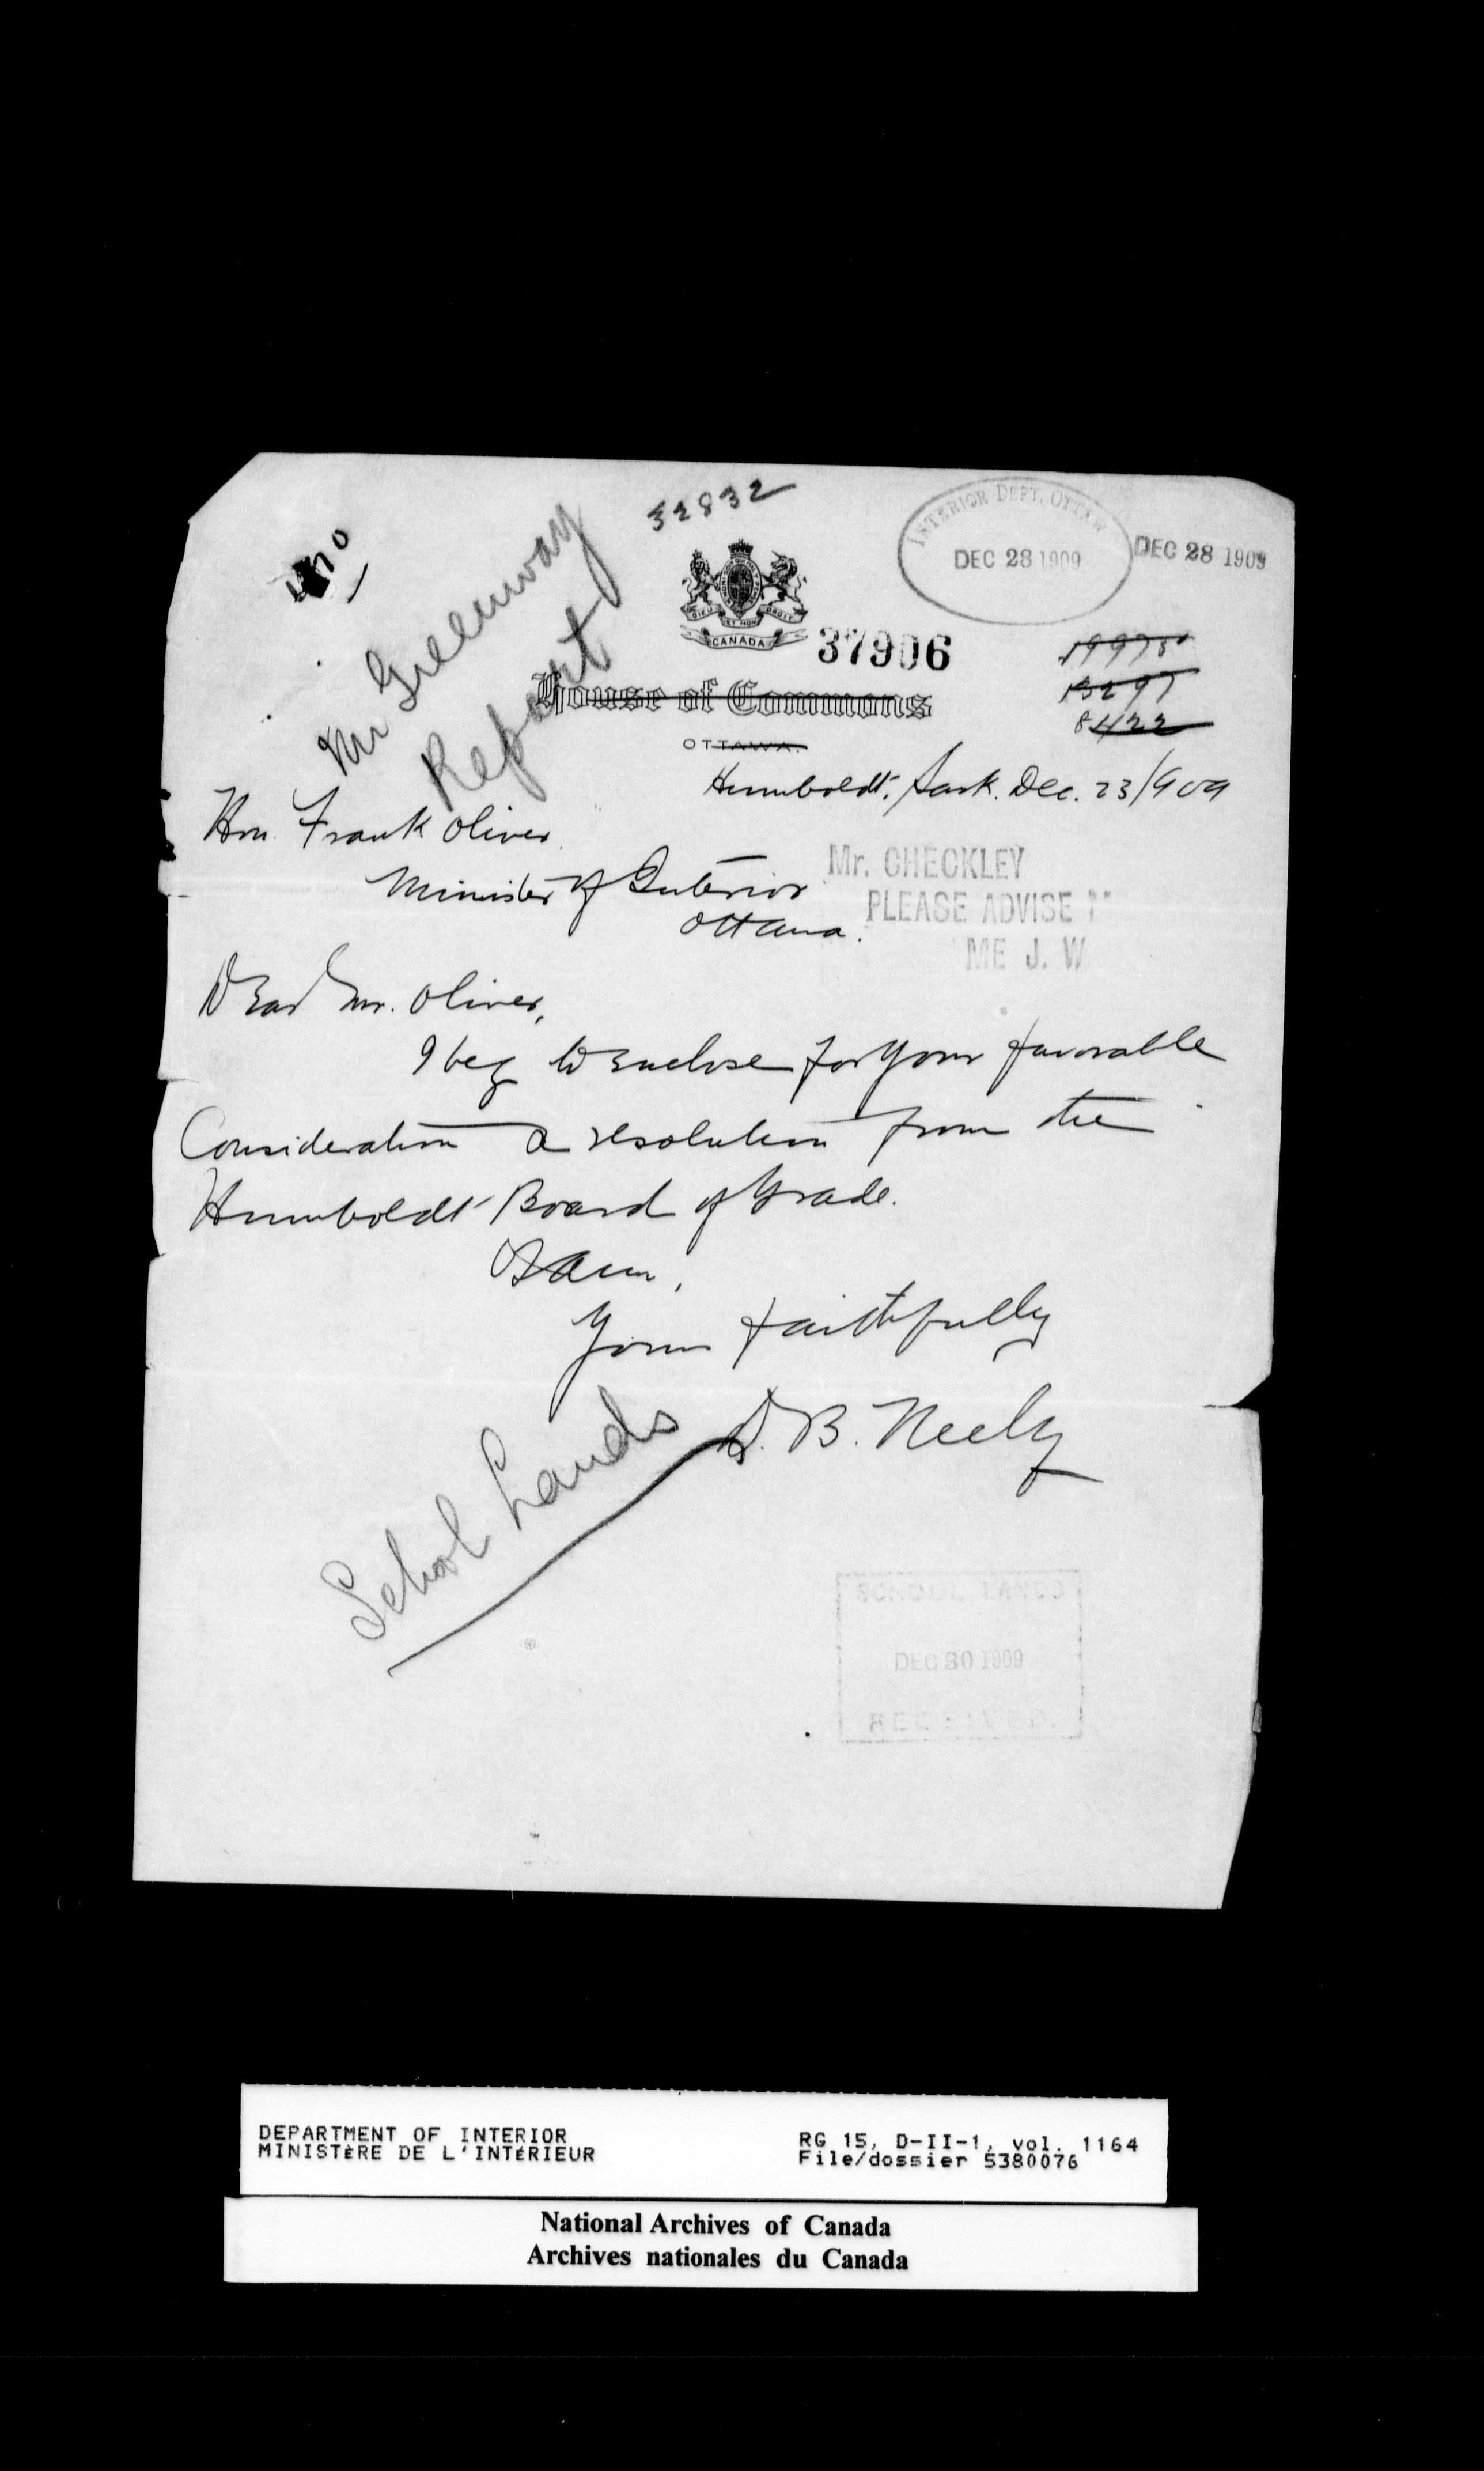 32832
INTERIOR DEPT. OTTAW
DEC 28 1909
DEC 28 1909
Mr Greenway
Report
DIEU ET MON DROIT
CANADA
37906
19975
13297
8422
House of Commons
OTTAWA.
Humboldt, Sask. Dec. 23/909
Hon. Frank Oliver
Minister of Interior
Ottawa.
Mr. CHECKLEY
PLEASE ADVISE
ME J. W
Dear Mr. Oliver,
I beg to enclose for your favorable
Consideration a resolution from the
Humboldt Board of Trade.
I am,
Yours faithfully
D. B. Neely
School Lands
SCHOOL LANDS
DEC 30 1909
RECEIVED.
DEPARTMENT OF INTERIOR
MINISTÈRE DE L'INTÉRIEUR
RG 15, D-II-1, vol. 1164
File/dossier 5380076
National Archives of Canada
Archives nationales du Canada